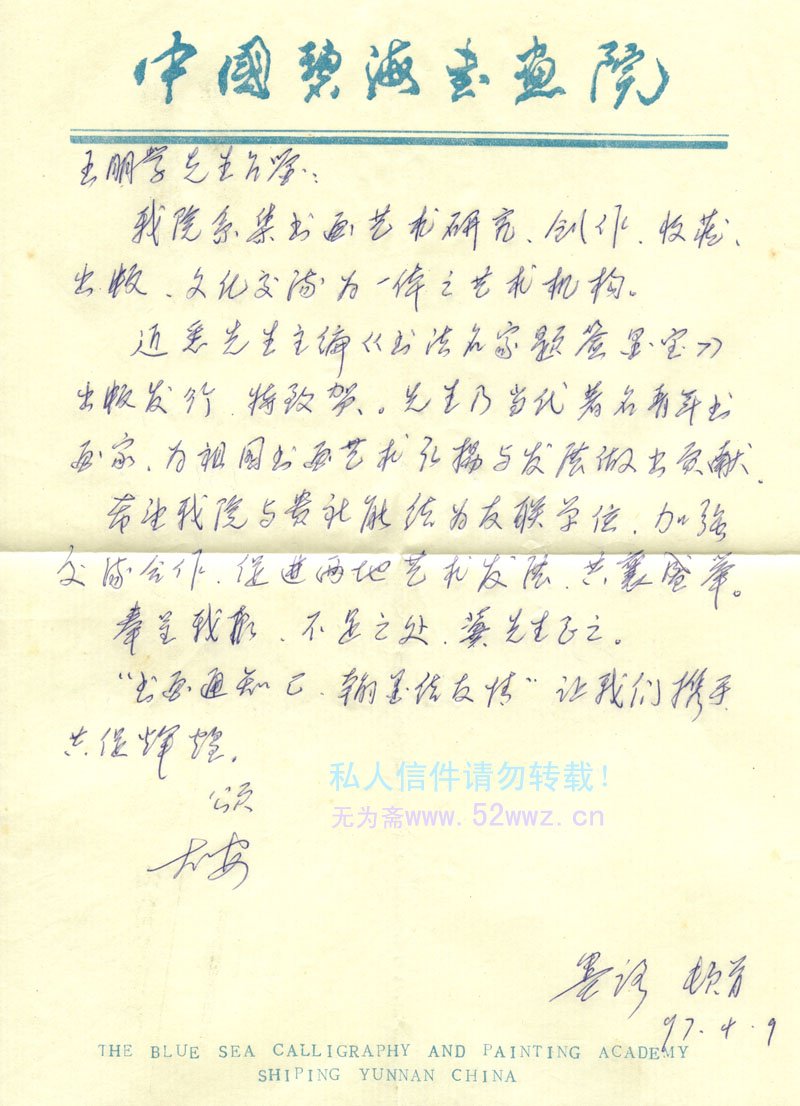 中國碧海书画院
王明学先生台鉴：
我院系集书画艺术研究、创作、收藏、
出版、文化交流为一体之艺术机构。
近悉先生主编《书法名家题签墨宝》
出版发行，特致贺。先生乃当代著名青年书
画家，为祖国书画艺术弘扬与发展做出贡献。
希望我院与贵社能结为友联单位，加强
交流合作，促进两地艺术发展，共襄盛举。
奉呈我报，不足之处，冀先生正之。
“书画通知己，翰墨结友情”让我们携手
共促辉煌。
颂
大安
私人信件请勿转载！
无为斋www.52wwz.cn
墨 顿首
97.4.9
THE BLUE SEA CALLIGRAPHY AND PAINTING ACADEMY
SHIPING YUNNAN CHINA